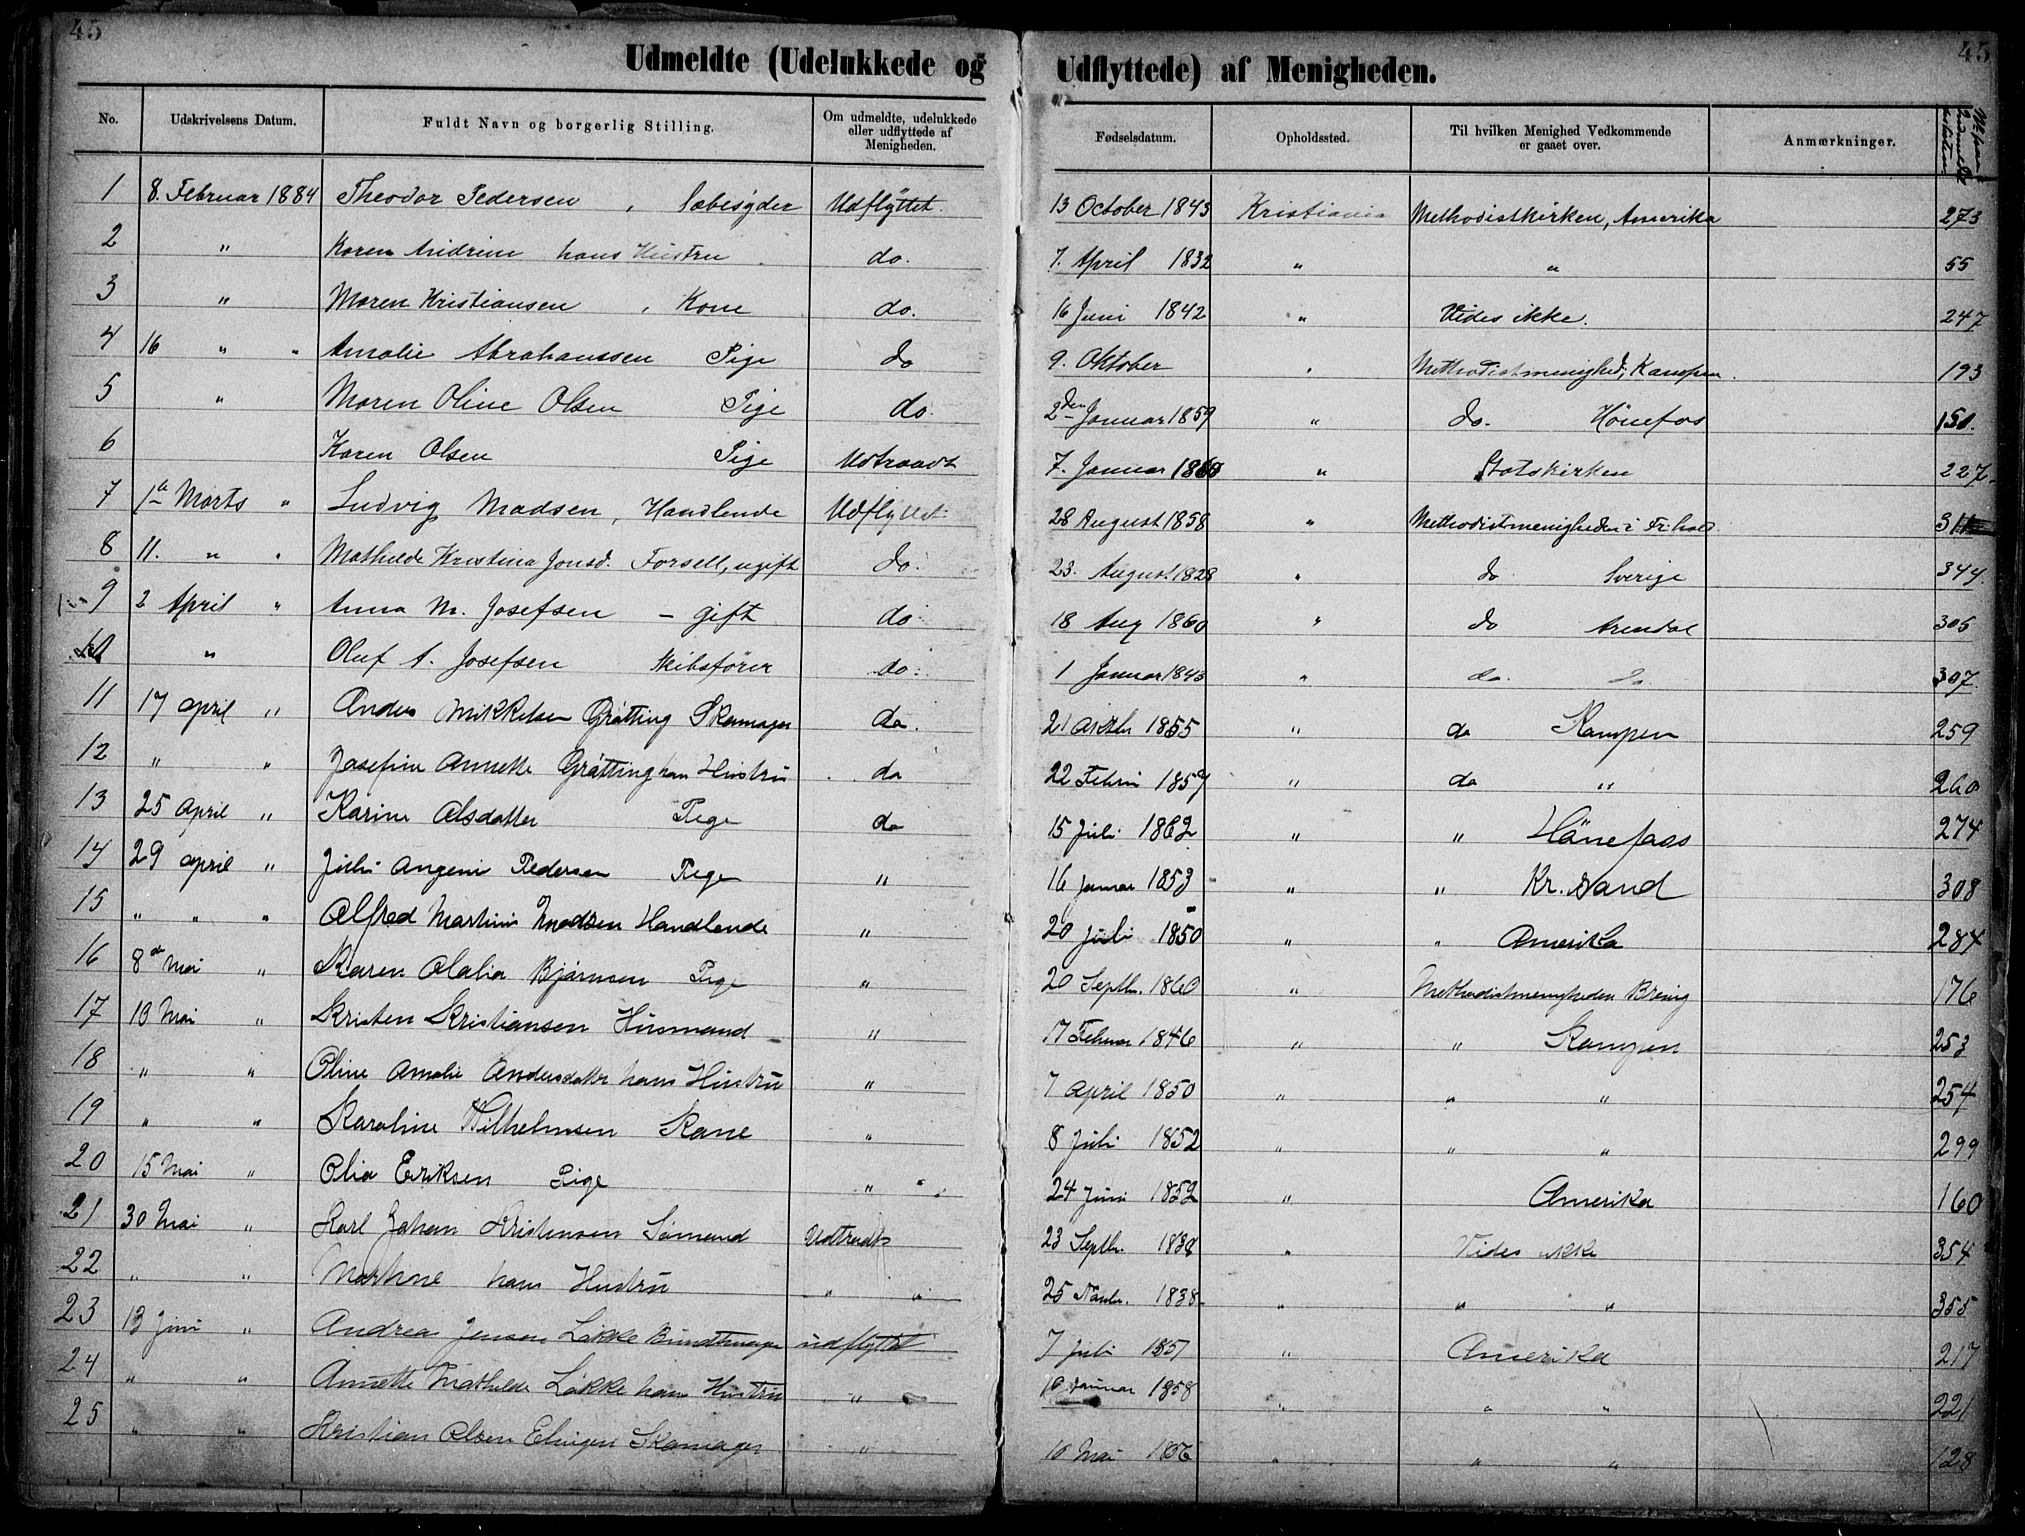 45 45
Udmeldte (Udelukkede og Udflyttede) af Menigheden.
No. Udskrivelsens Datum. Fuldt Navn og borgerlig Stilling. Om udmeldte, udelukkede eller udflyttede af Menigheden. Fødselsdatum. Opholdssted. Til hvilken Menighed Vedkommende er gaaet over. Anmærkninger.
1 8. Februar 1884 Theodor Pedersen, Sæbesyder Udflyttet. 13 October 1843 Kristiania Methodistkirken, Amerika 273
2 " Karen Andrine hans Hustru do. 7. April 1832 " " 55
3 " Maren Kristiansen, Kone do. 16 Juni 1842 " Vides ikke. 247
4 16 " " Amalie Abrahamssen Pige do 9. Oktober " Methodistmenighed, Kampen. 193
5 " Maren Oline Olsen Pige do. 2den Januar 1859 " do. Hönefos 151.
6 Karen Olsen Pige Udtraadt 7. Januar 1860 " Statskirken 227.
7 1ste Marts " Ludvig Madsen, Handlende Udflyttet 28 August 1858 " Methodistmenigheden i Fr.hald. 311
8 11. " " Mathilde Kristina Jonsd. Forsell, ugift do. 23. August 1828 " do Sverige 344.
9 2 April " Anna M. Josefsen - gift do 18 Aug 1860 " do Arendal 305
10 " Oluf A. Josefsen Skibsfører do. 1 Januar 1843 " do. do 307.
11 17 april " Anders Mikkelsen Gråtting Skomager do. 21 Oktbr 1855 " do Kampen 259
12 " " Josefine Annette Gråtting hans Hustru do 22 Febru 1857 " do " 260
13 25 april " Karine Olsdatter Pige do 15 Juli 1862 " " Hönefoss 274
14 29 april " Julie Angenie Pedersen Pige " 16 Januar 1853 " " Kr.sand 308
15 " " " Alfred Martinus Madsen Handlende " 20 Juli 1850 " " Amerika 284
16 8de Mai " Karen Olalia Bjørnsen Pige " 20 Septbr. 1860 " Methodistmenigheden Brevig 176
17 10 Mai " Kristen Kristiansen Husmand " 17 Februar 1846 " " Kampen 253
18 " " Oline Amalie Andersdatter hans Hustru " 7 April 1850 " " " 254
19 " " Karoline Wilhelmsen Kone " 8 Juli 1852 " " " 299
20 15 Mai " Olia Eriksen Pige " " 24 Juni 1852 " Amerika 160
21 30 Mai " Karl Johan Kristensen Sömand Udtraadt 23 Septbr. 1838 " Vides ikke 354
22 " " Martine hans Hustru " " 25 Novbr. 1838 " " " 355
23 13 Juni " Andrea Jensen Løkke Bundtmager udflyttet 7 Juli 1857 " Amerika 217
24 " " Annette Mathilde Løkke hans Hustru " 10 Januar 1858 " " " 221
25 " " Kristian Olsen Skomager " 10 Mai 1856 " " " 128